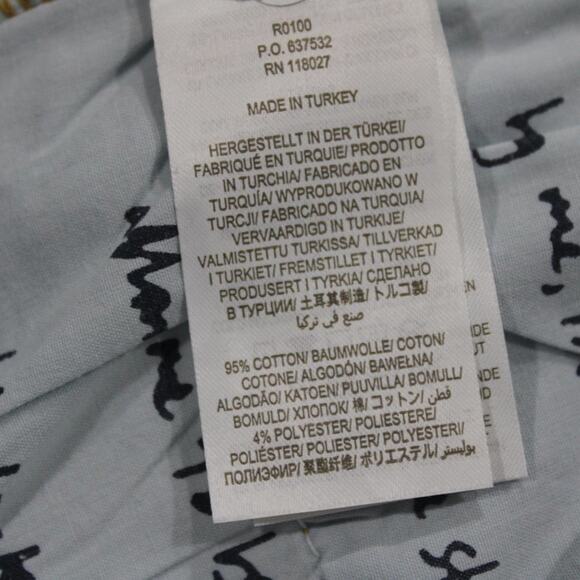 R0100
P.O. 637532
RN 118027
MADE IN TURKEY
HERGESTELLT IN DER TÜRKEI/
FABRIQUÉ EN TURQUIE/ PRODOTTO
IN TURCHIA/ FABRICADO EN
TURQUÍA/ WYPRODUKOWANO W
TURCJI/ FABRICADO NA TURQUIA/
VERVAARDIGD IN TURKIJE/
VALMISTETTU TURKISSA/ TILLVERKAD
I TURKIET/ FREMSTILLET I TYRKIET/
PRODUSERT I TYRKIA/ СДЕЛАНО
В ТУРЦИИ/ 土耳其制造/ トルコ製/
صنع في تركيا
95% COTTON/ BAUMWOLLE/ COTON/
COTONE/ ALGODÓN/ BAWEŁNA/
ALGODÃO/ KATOEN/ PUUVILLA/ BOMULL/
BOMULD/ ХЛОПОК/ 棉/ コットン/ قطن/
4% POLYESTER/ POLIESTERE/
POLIÉSTER/ POLIESTER/ POLYESTERI/
ПОЛИЭФИР/ 聚酯纤维/ ポリエステル/ بوليستر/